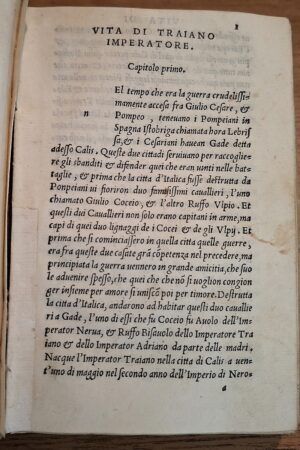 1
VITA DI TRAIANO
IMPERATORE.
Capitolo primo.
EL tempo che era la guerra crudelissi-
mamente accesa fra Giulio Cesare, &
n Pompeo, teneuano i Pompeiani in
Spagna Istobriga chiamata hora Lebris
sa, & i Cesariani hauean Gade detta
adesso Calis. Queste due cittadi seruiuano per raccoglie-
re gli sbanditi & difender quei che eran uinti nelle bat-
taglie, & prima che la citta d'Italica fusse destrutta da
Ponpeiani ui fioriron duo famosissimi cauallieri, l'uno
chiamato Giulio Coceio, & l'altro Ruffo Vlpio. Et
questi dui Cauallieri non solo erano capitani in arme, ma
capi di quei duo lignaggi de i Cocei & de gli Vlpij. Et
prima che si cominciassero in quella citta quelle guerre,
era fra queste due casate grã cõpetenza nel precedere, ma
principiata la guerra uennero in grande amicitia, che suo
le aduenire spesso, che quei che nõ si uoglion congion
ger insieme per amore si uniscõ poi per timore. Destrutta
la citta d'Italica, andarono ad habitar questi duo cauallie
ri a Gade, l'uno di essi che fu Coceio fu Auolo dell'Im-
perator Nerua, & Ruffo Bisauolo dello Imperatore Tra
iano & dello Imperator Adriano da parte delle madri.
Nacque l'Imperator Traiano nella citta di Calis a uent'
t'uno di maggio nel secondo anno dell'Imperio di Nero-
a